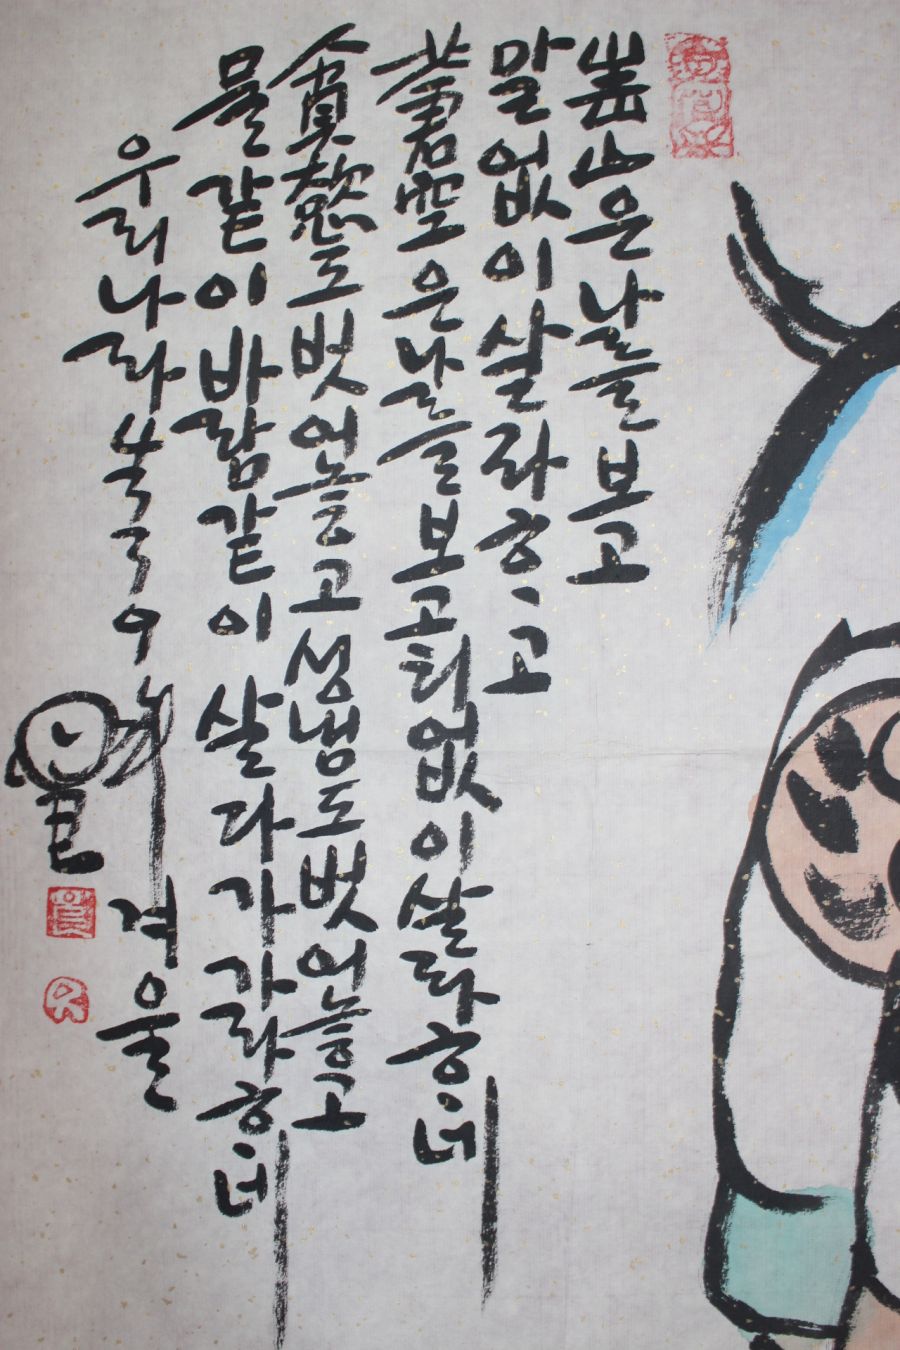 靑山은 나를 보고
말없이 살라ᄒᆞ고
蒼空은 나를 보고 티없이 살라ᄒᆞ네
貪慾도 벗어놓고 성냄도 벗어놓고
물같이 바람같이 살다가 가라ᄒᆞ네
우리나라 年 겨울